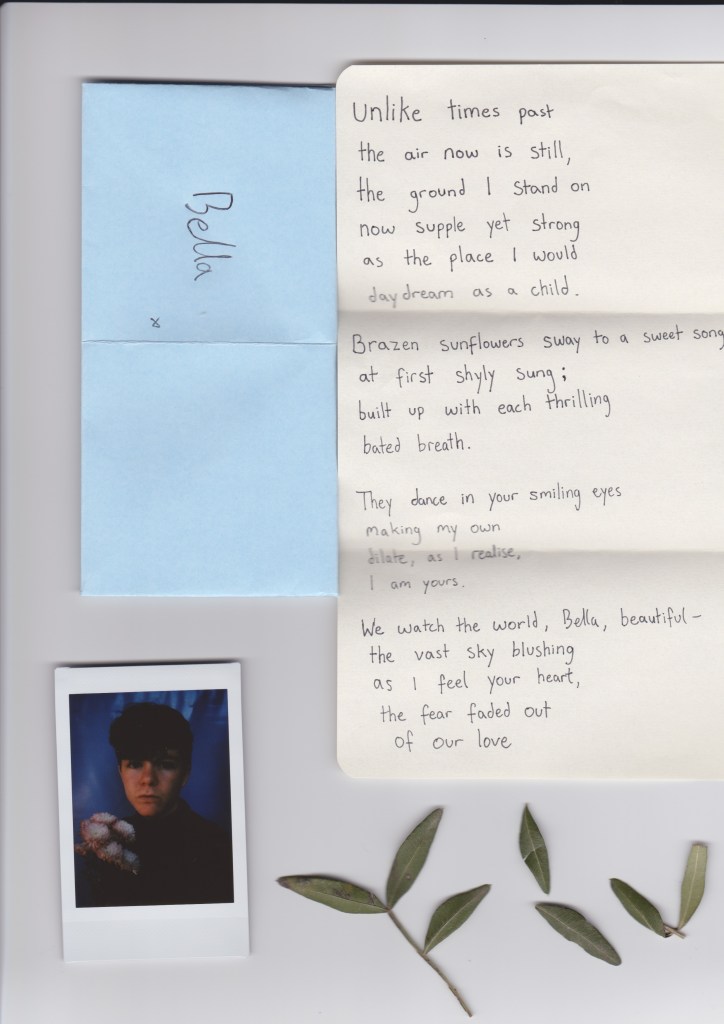 Bella
x
Unlike times past
the air now is still,
the ground I stand on
now supple yet strong
as the place I would
daydream as a child.
Brazen sunflowers sway to a sweet song
at first shyly sung;
built up with each thrilling
bated breath.
They dance in your smiling eyes
making my own
dilate, as I realise,
I am yours.
We watch the world, Bella, beautiful–
the vast sky blushing
as I feel your heart,
the fear faded out
of our love